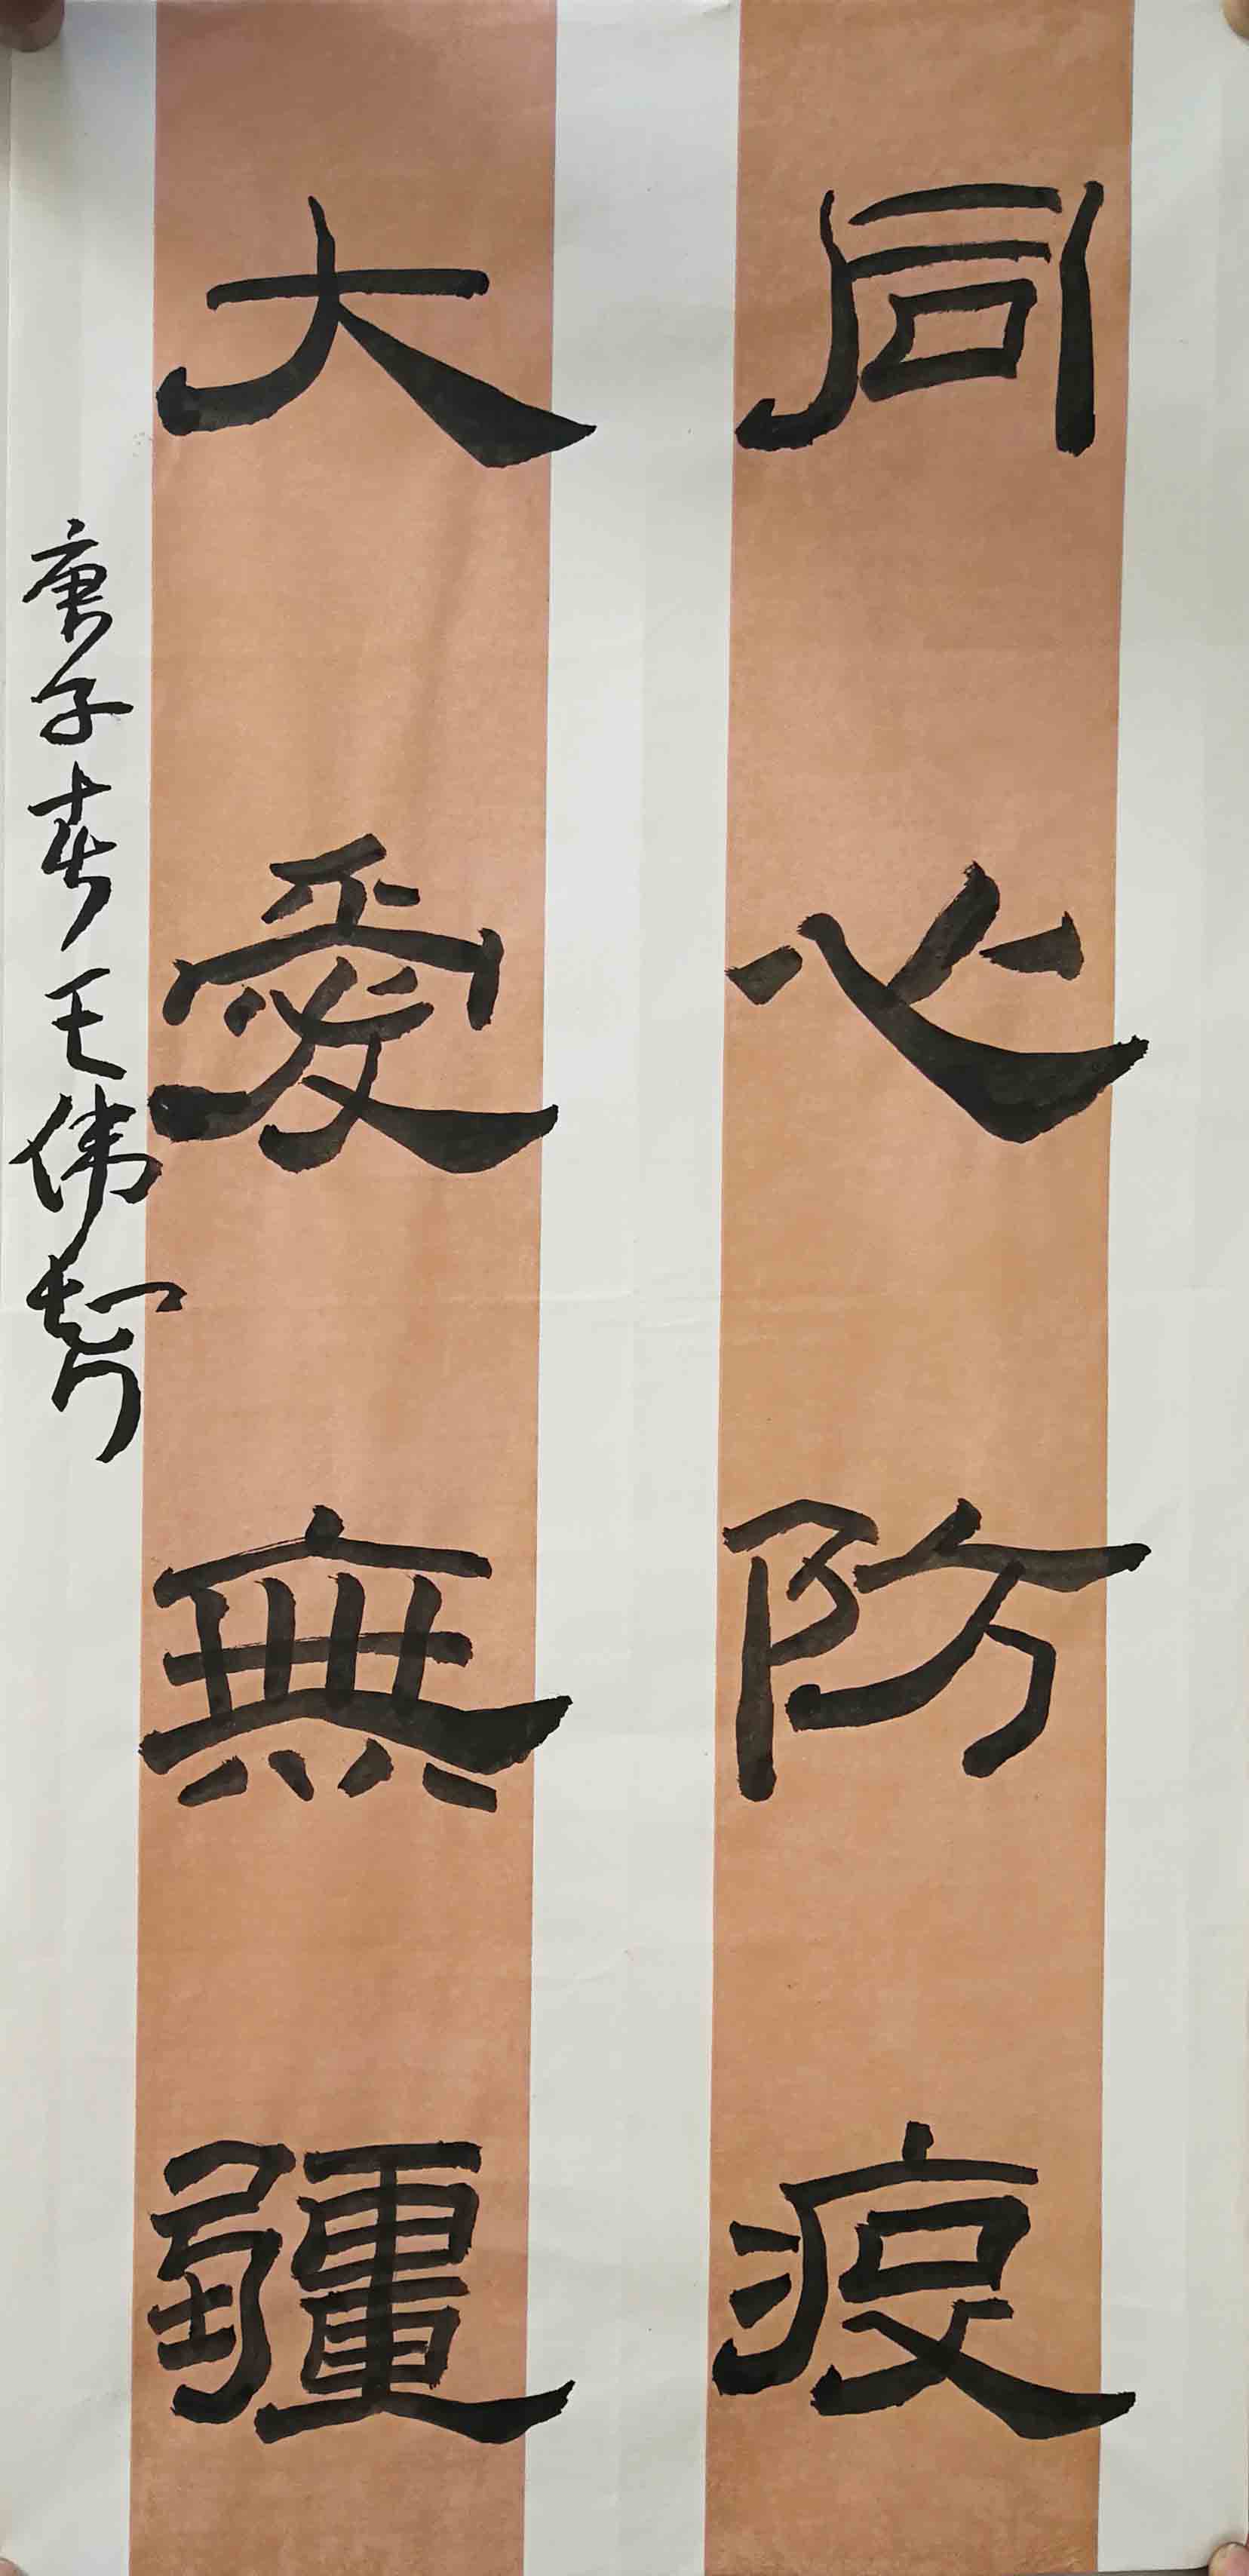 同心防疫
大愛無疆
庚子春王伟